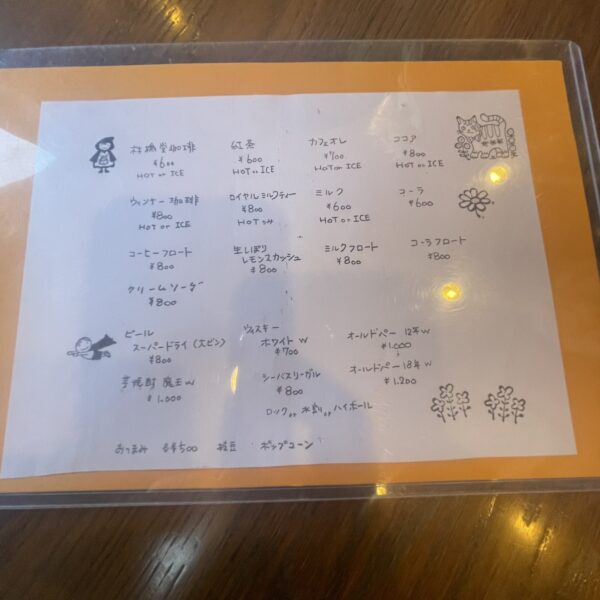 珈琲 紅茶 カフェオレ ココア
¥600 ¥600 ¥700 ¥800
HOT or ICE HOT or ICE HOT or ICE HOT or ICE
ウィンナー珈琲 ロイヤルミルクティー ミルク コーラ
¥800 ¥800 ¥600 ¥600
HOT or ICE HOTのみ HOT or ICE
コーヒーフロート 生しぼり ミルクフロート コーラフロート
レモンスカッシュ
¥800 ¥800 ¥800 ¥800
クリームソーダ
¥800
ビール ウィスキー オールドパー 12年 W
スーパードライ (大ビン) ホワイト W ¥1,000
¥800 ¥700
芋焼酎 魔王 W シーバスリーガル オールドパー 18年 W
¥1,000 ¥800 ¥1,200
ロック or 水割り or ハイボール
おつまみ 各¥500 枝豆 ポップコーン